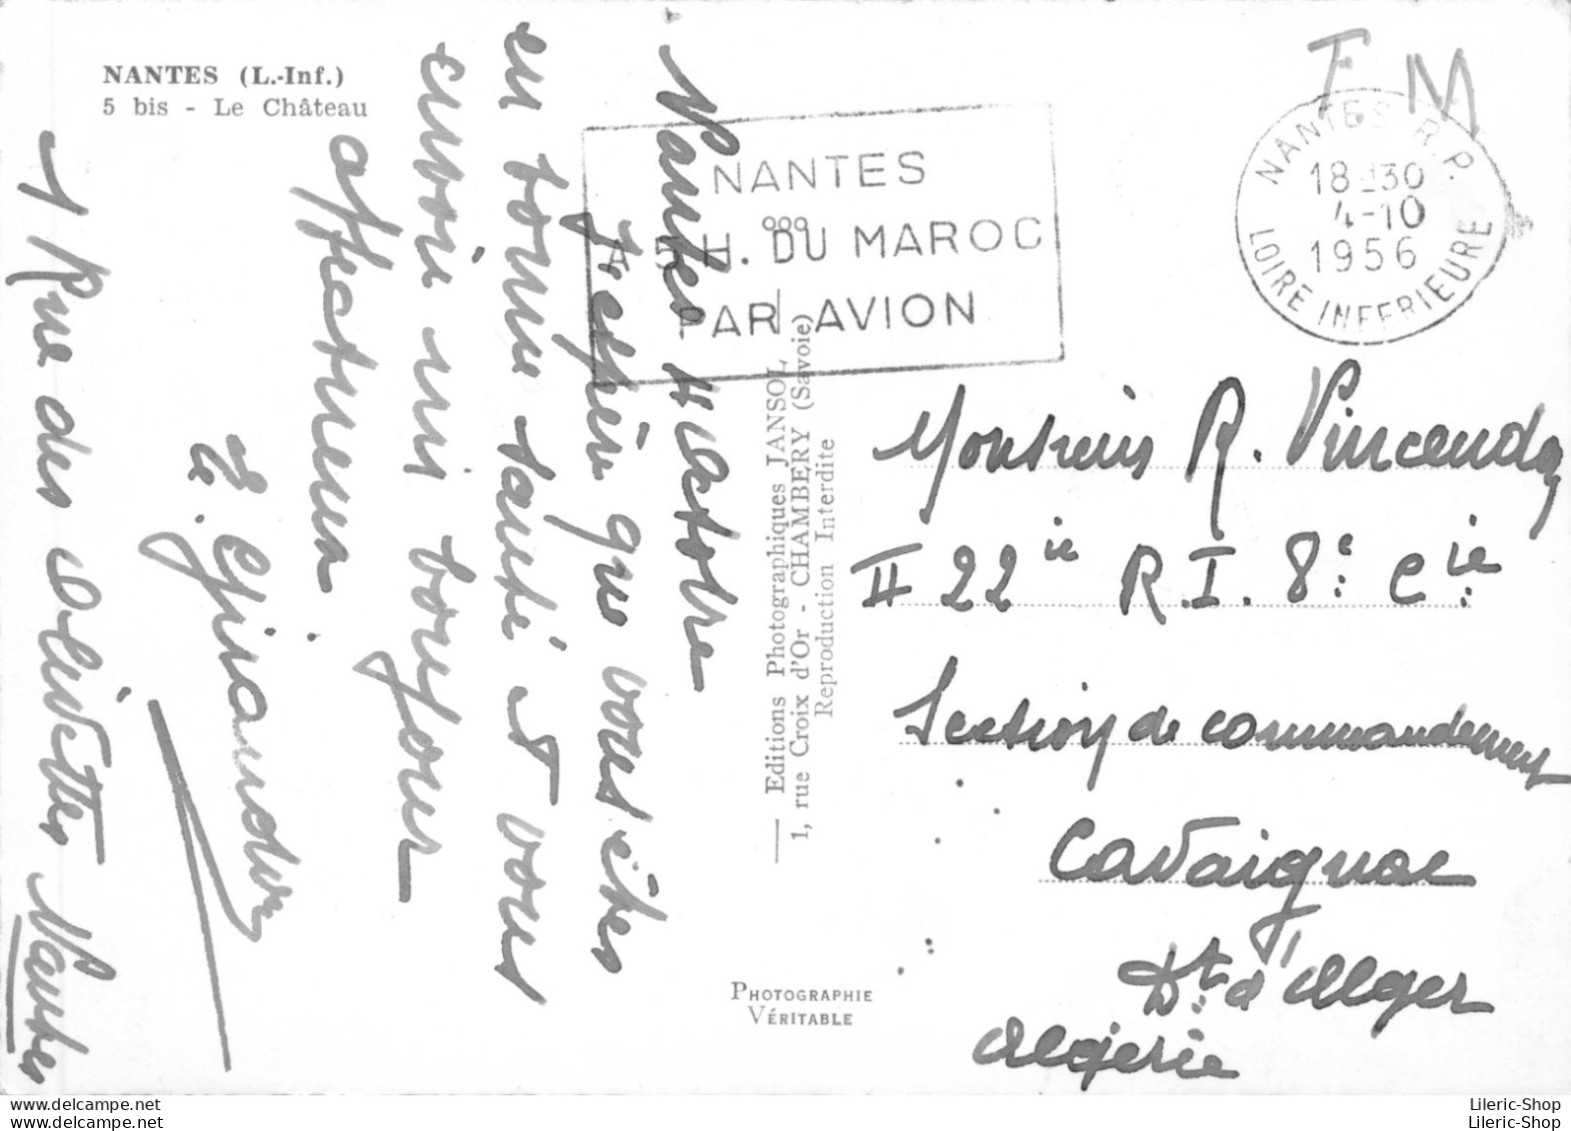 NANTES (L.-Inf.)
5 bis - Le Château
F M
NANTES R.P.
18 30
4-10
1956
LOIRE INFERIEURE
NANTES
A 5 H. 000 DU MAROC
PAR AVION
Nantes 4 Octobre
J'espère que vous êtes
en bonne santé et vous
envoie un bonjour
affectueux
1 Rue des Olivettes Nantes
Editions Photographiques JANSOL
1, rue Croix d'Or - CHAMBERY (Savoie)
Reproduction Interdite
PHOTOGRAPHIE
VÉRITABLE
Monsieur R.
II 22ie R.I. 8e Cie
Section de commandement
Cavaignac
Dt d'Alger
Algérie
Lileric-Shop
Lileric-Shop
www.delcampe.net
www.delcampe.net